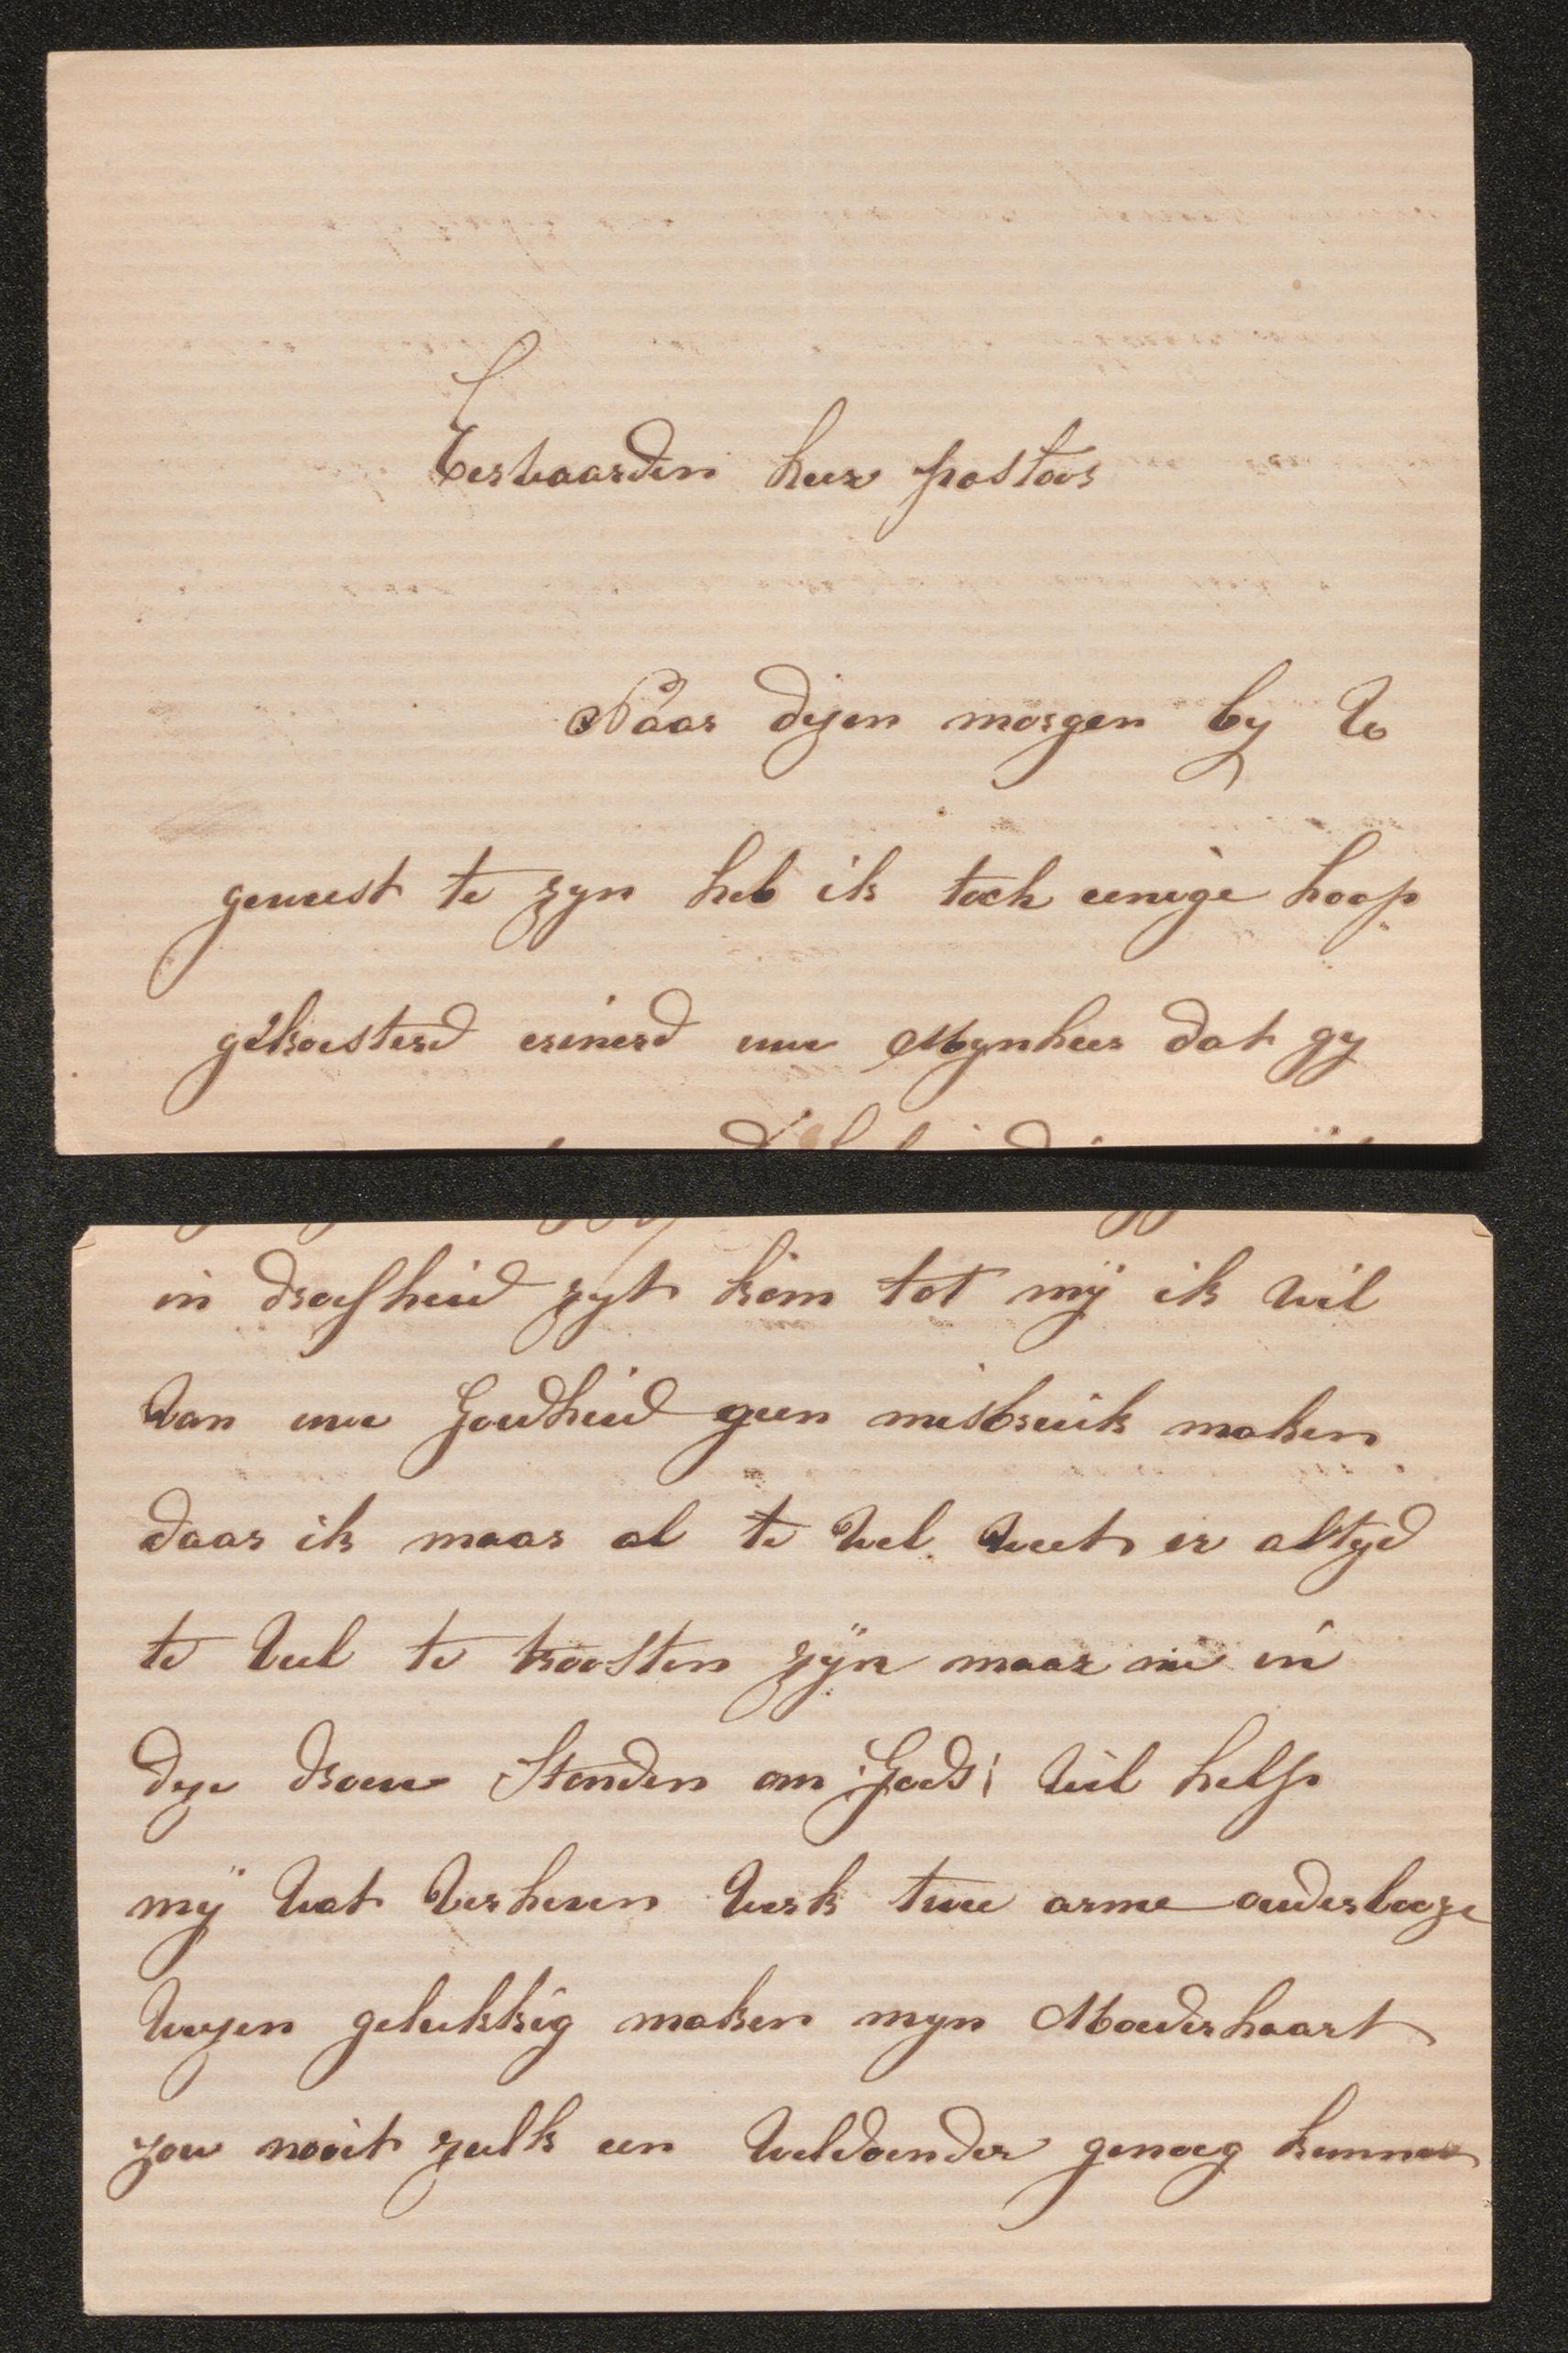 Eerbaarden heer pastoor
Naar dezen morgen by U
geweest te zyn heb ik toch eenige hoop
gekoesterd erinerd uwe Mynheer dat gy
in droefheid zyt kom tot mÿ ik wil
van uwe Goedheid geen misbruik maken
daar ik maar al te wel weet er altyd
te veel te troosten zÿn maar nu in
deze droeve Stonden om Gods wil help
mÿ wat verheven werk twee arme ouderlooze
weezen gelukkig maken myn Moederhaart
zou nooit zulk een weldoender genoeg kunnen